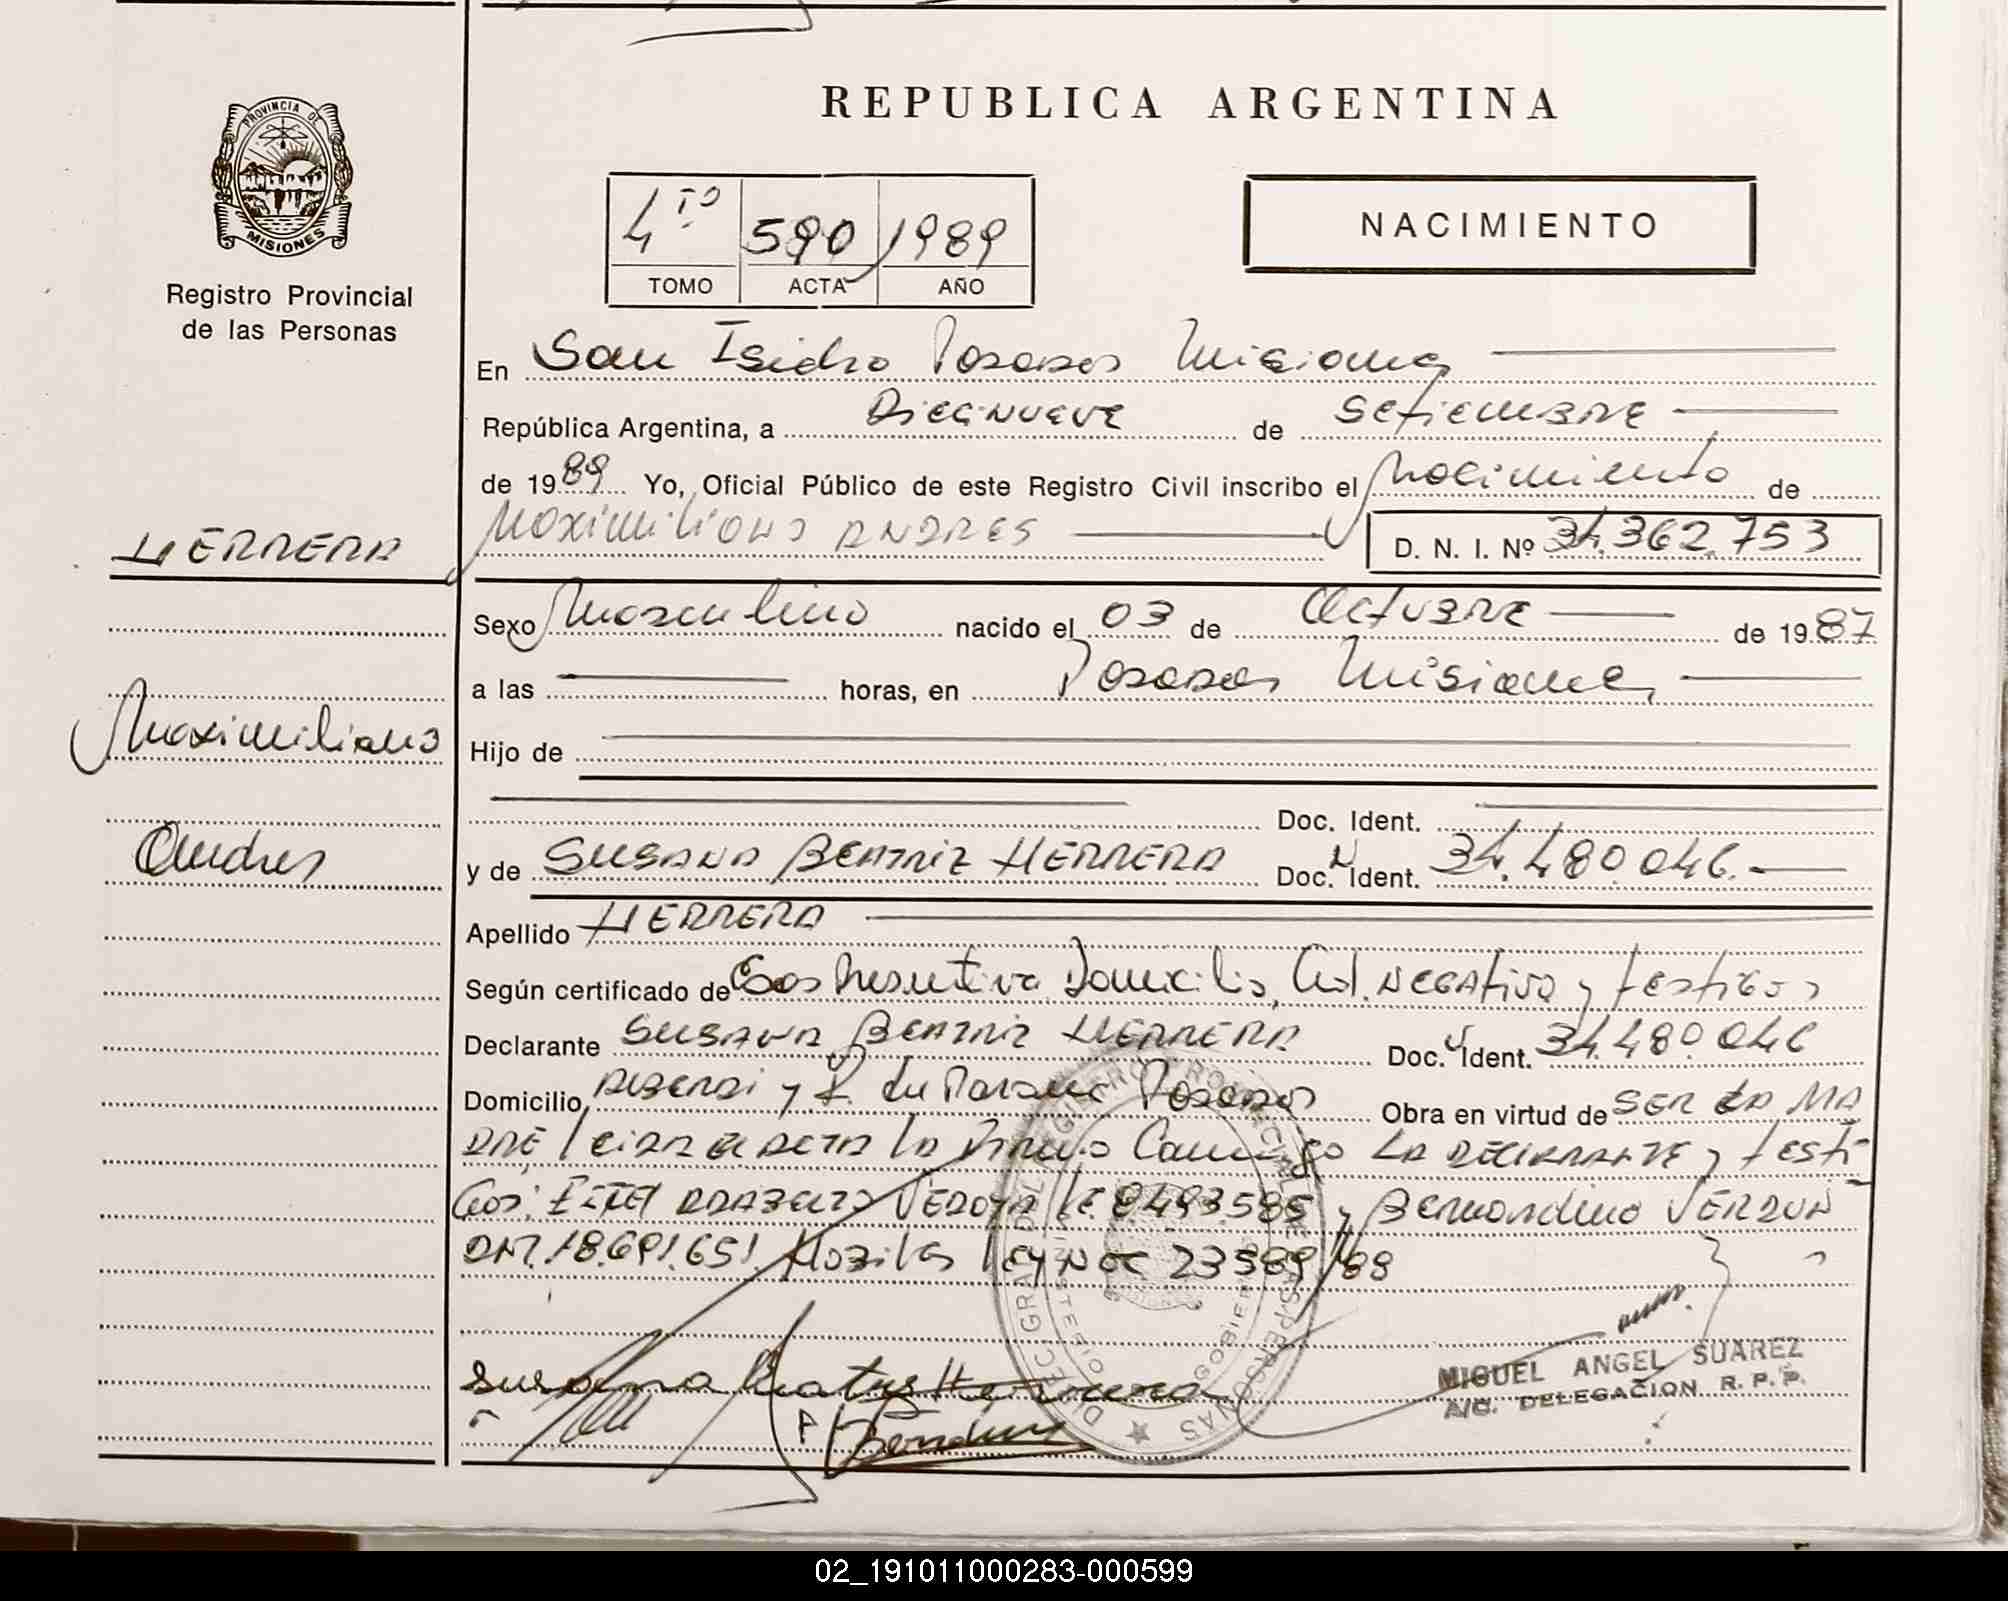 REPUBLICA ARGENTINA
PROVINCIA DE
MISIONES
Registro Provincial
de las Personas
4to 590 1989
TOMO ACTA AÑO
NACIMIENTO
En San Isidro Posadas Misiones
República Argentina, a Diecinueve de Setiembre
de 1989 Yo, Oficial Público de este Registro Civil inscribo el Nacimiento de
HERRERA
Maximiliano ANDRES D. N. I. Nº 34.362.753
Sexo Masculino nacido el 03 de Octubre de 1987
a las horas, en Posadas Misiones
Maximiliano
Hijo de
Doc. Ident.
Andres
y de SUSANA BEATRIZ HERRERA Doc. Ident. 34.480.046.-
Apellido HERRERA
Según certificado de Domicilio, NEGATIVO y testigos
Declarante SUSANA BEATRIZ HERRERA Doc. Ident. 34.480.046
Domicilio y Posadas Obra en virtud de SER LA MA
DRE leida el acta la firma Conmigo LA DECLARANTE y testi-
gos: VEDOYA LE 8.493.585 y Bernardino VERDUN
DNI. 18.691.651. Ley 23589/88
Susana Beatriz Herrera
MIGUEL ANGEL SUAREZ
A/C. DELEGACION R. P. P.
02_191011000283-000599